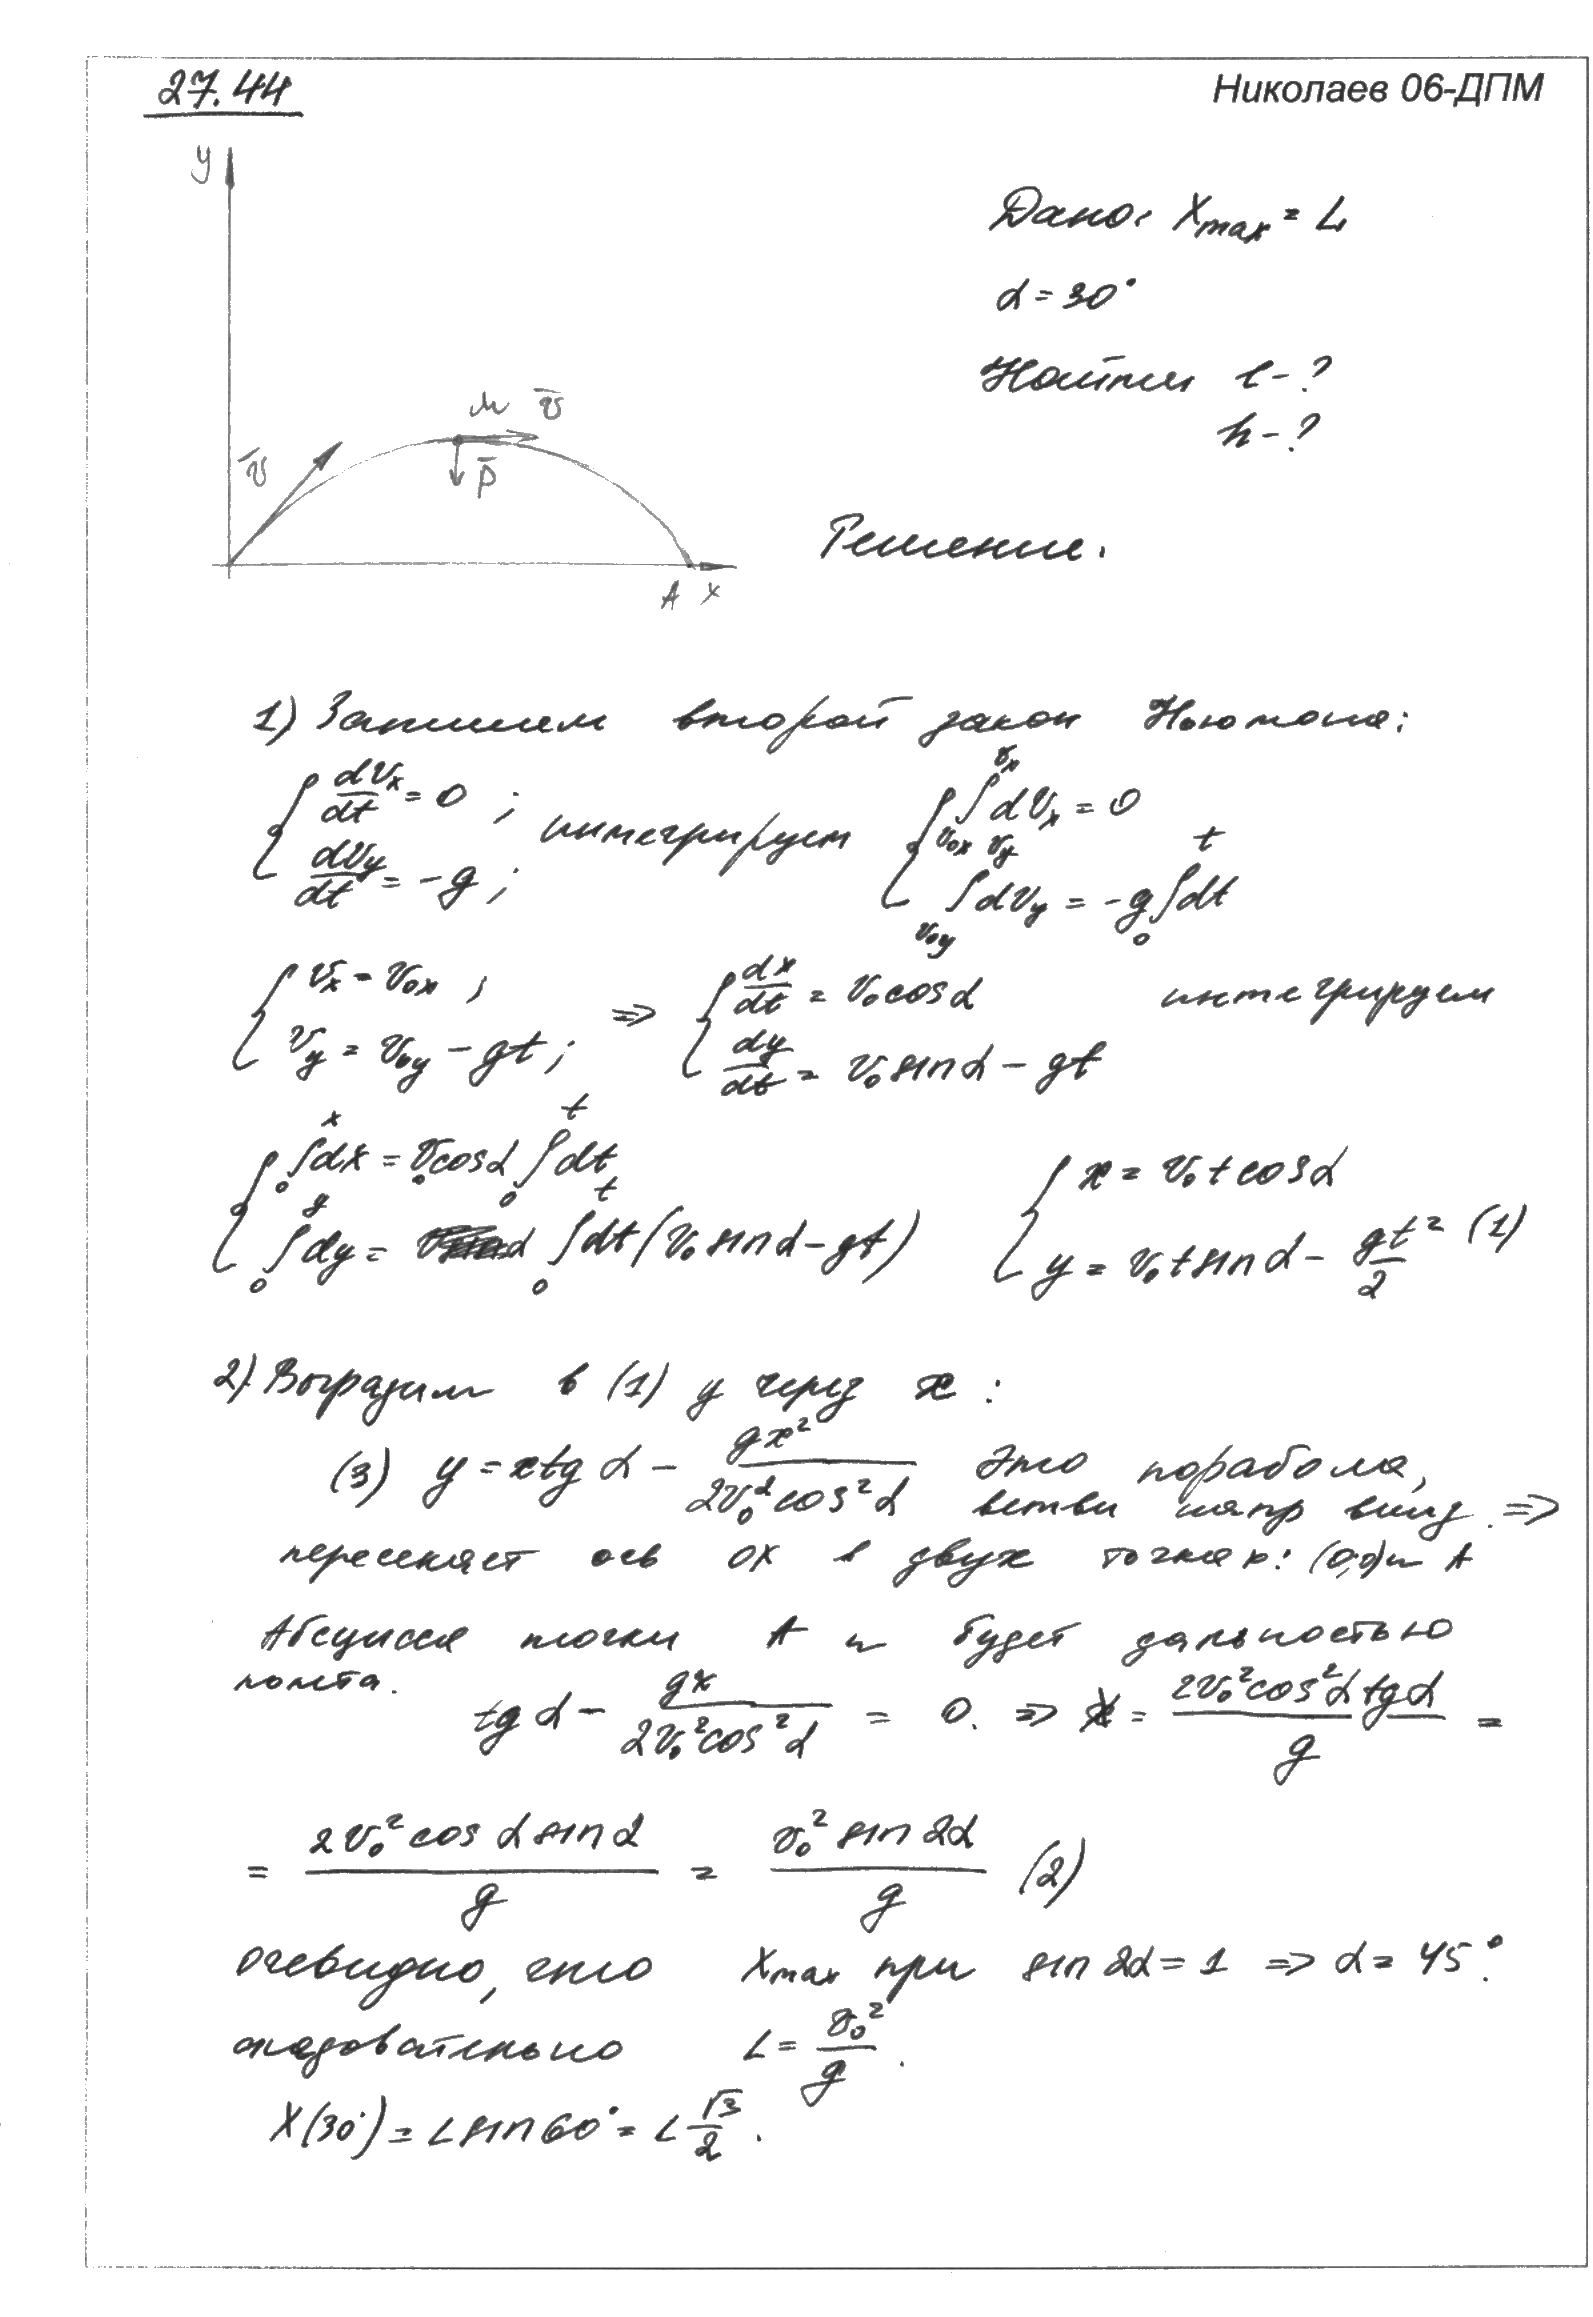 27.44
Николаев 06-ДПМ
y
Дано: Xmax = L
α = 30°
Найти l - ?
h - ?
M v̄
v̄
P̄
A x
Решение.
1) Запишем второй закон Ньютона:
{ dVx/dt = 0 ; dVy/dt = -g ; интегрируем { ∫_{v0x}^{vx} dVx = 0 ; ∫_{v0y}^{vy} dVy = -g ∫_0^t dt
{ vx = v0x ; vy = v0y - gt ; => { dx/dt = v0 cos α ; dy/dt = v0 sin α - gt интегрируем
{ ∫_0^x dx = v0 cos α ∫_0^t dt ; ∫_0^y dy = ∫_0^t dt (v0 sin α - gt) { x = v0 t cos α ; y = v0 t sin α - gt²/2 (1)
2) Выразим в (1) y через x :
(3) y = x tg α - gx²/(2v0² cos² α) Это парабола,
ветви напр вниз. =>
пересекает ось OX в двух точках: (0;0) и A
Абсцисса точки A и будет дальностью
полета.
tg α - gx/(2v0² cos² α) = 0. => x = 2v0² cos² α tg α/g =
= 2v0² cos α sin α/g = v0² sin 2α/g (2)
очевидно, что Xmax при sin 2α = 1 => α = 45°.
следовательно L = v0²/g .
X(30°) = L sin 60° = L √3/2 .